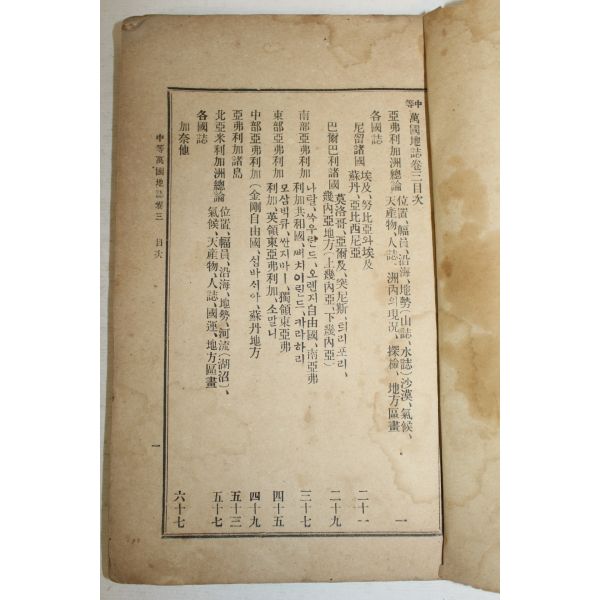 中等萬國地誌卷三目次
亞弗利加洲總論 位置、幅員、沿海、地勢(山誌、水誌)沙漠、氣候、
天産物、人誌、洲內의現况、探檢、地方區畫 一
各國誌
尼留諸國 埃及、努比亞와埃及
蘇丹、亞比西尼亞 二十一
巴爾巴利諸國 莫洛哥、亞爾及、突尼斯、릐리포리、
幾內亞地方(上幾內亞、下幾內亞) 二十九
南部亞弗利加 나랄、쑤우란드、오렌지自由國、南亞弗
利加共和國、뼈치아린드、카라하리 三十七
東部亞弗利加 모삼빅큐、싼지바ー、獨領東亞弗
利加、英領東亞弗利加、소말니 四十五
中部亞弗利加(金剛自由國、섬바시아、蘇丹地方 四十九
亞弗利加諸島 五十三
北亞米利加洲總論 位置、幅員、沿海、地勢、河流(湖沼)、
氣候、天産物、人誌、國運、地方區畫 五十七
各國誌
加奈他 六十七
中等萬國地誌卷三 目次 一